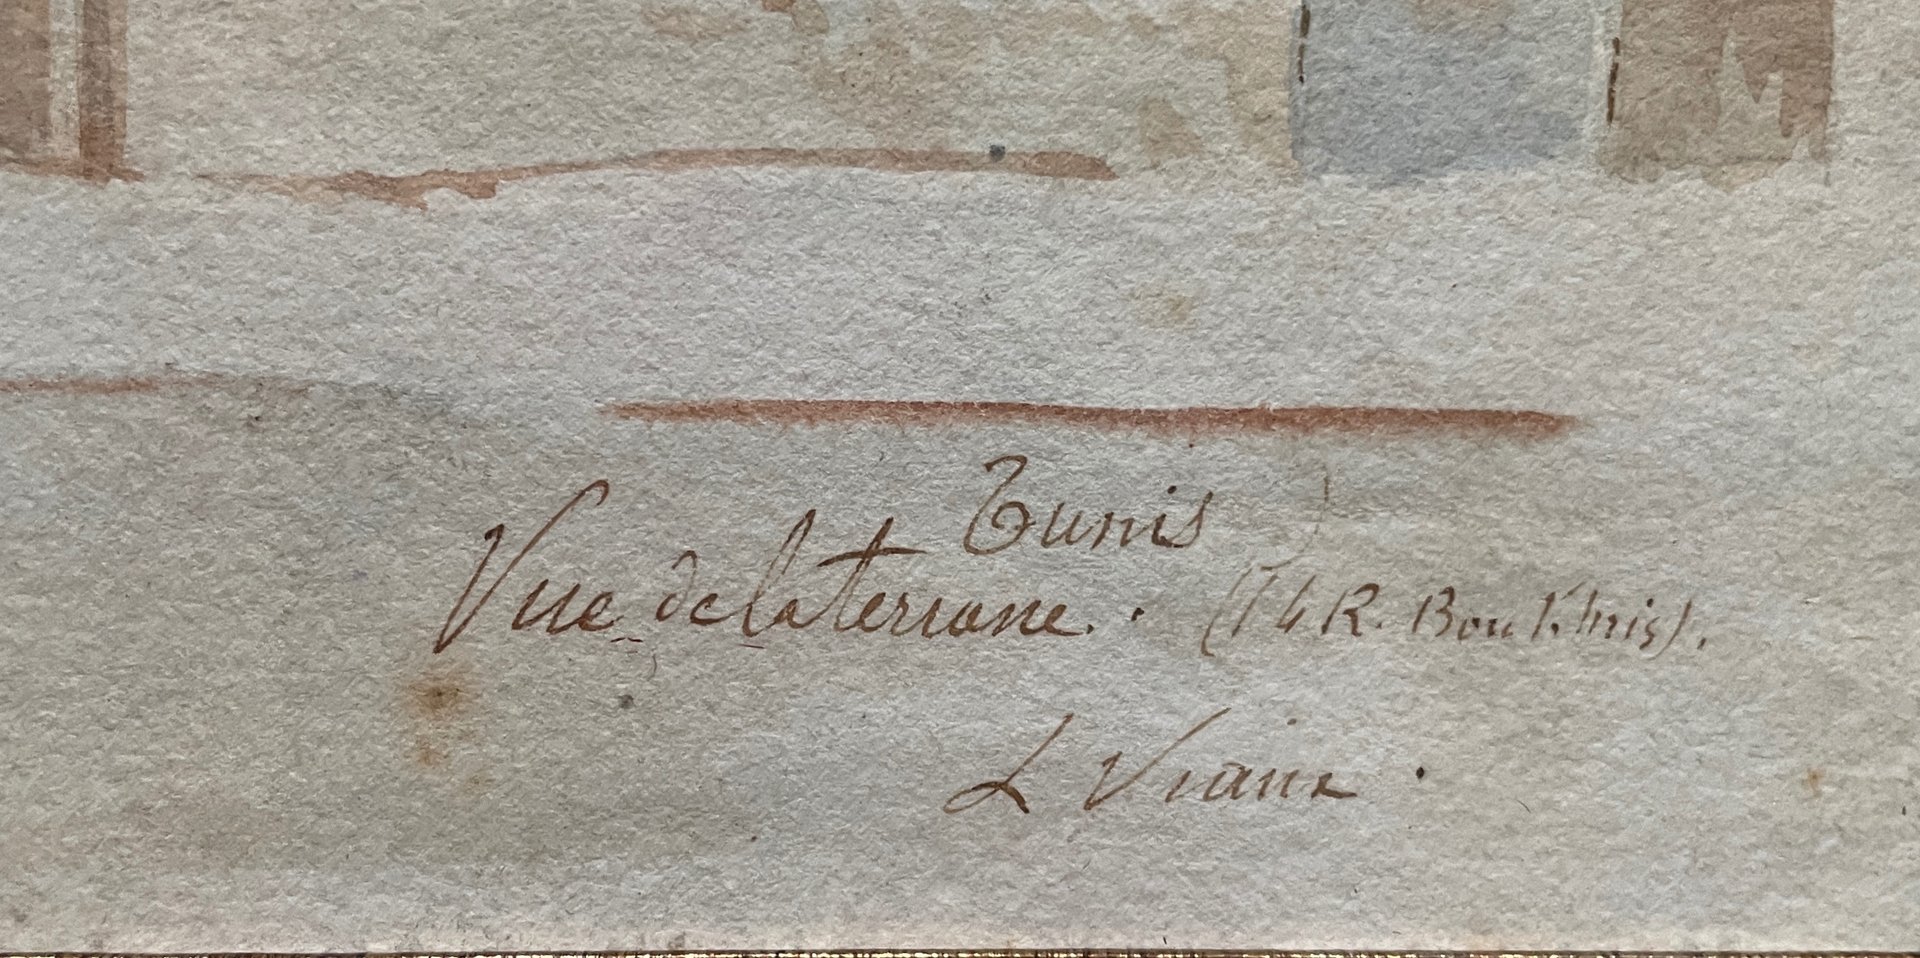 Tunis
Vue de la terrasse. (74 R. Bou Khris).
L Viaux.